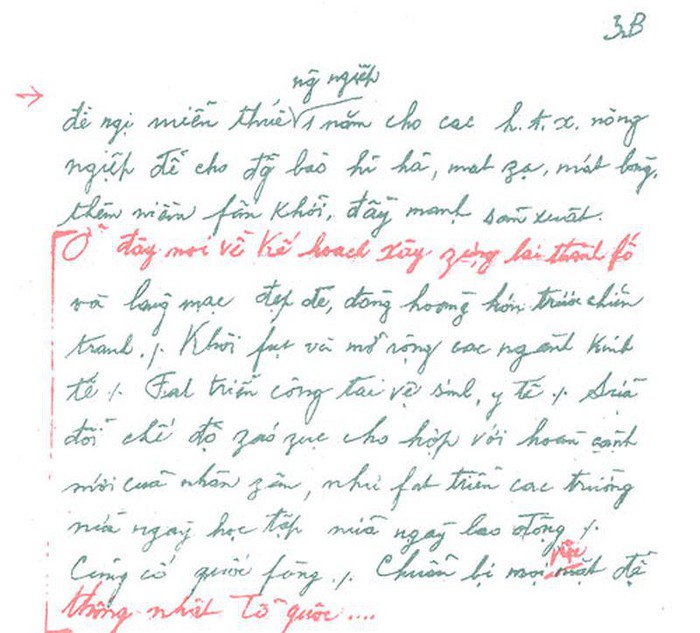 3B
ng ngiệp
đề ngị miễn thuế 1 năm cho các h.t.x. nông
ngiệp để cho đg bào hỉ hả, mat zạ, mát lòng,
thêm niềm fấn khởi, đẩy mạnh sản xuất.
Ở đây nói về kế hoạch xây zựng lại thành fố
và làng mạc đẹp đẽ, đàng hoàng hơn trước chiến
tranh ./. Khôi fục và mở rộng các ngành kinh
tế ./. Fat triển công tác vệ sinh, y tế ./. Sửa
đổi chế độ záo zục cho hợp với hoàn cảnh
mới của nhân zân, như fat triển các trường
nửa ngày học tập nửa ngày lao động ./.
việc
Củng cố quốc fòng ./. Chuẩn bị mọi mặt để
thống nhất Tổ quốc ....